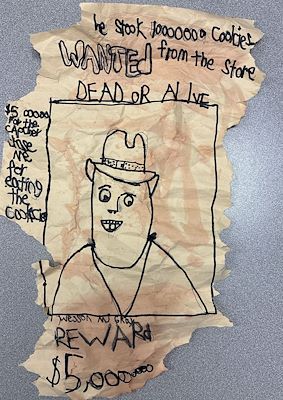 he stook 10000000 Cookies
WANTED from the store
DEAD OR ALIVE
$5 00000
for the
me
for
eating
the
cookies
Wesson W Gray
REWARd
$5,000000